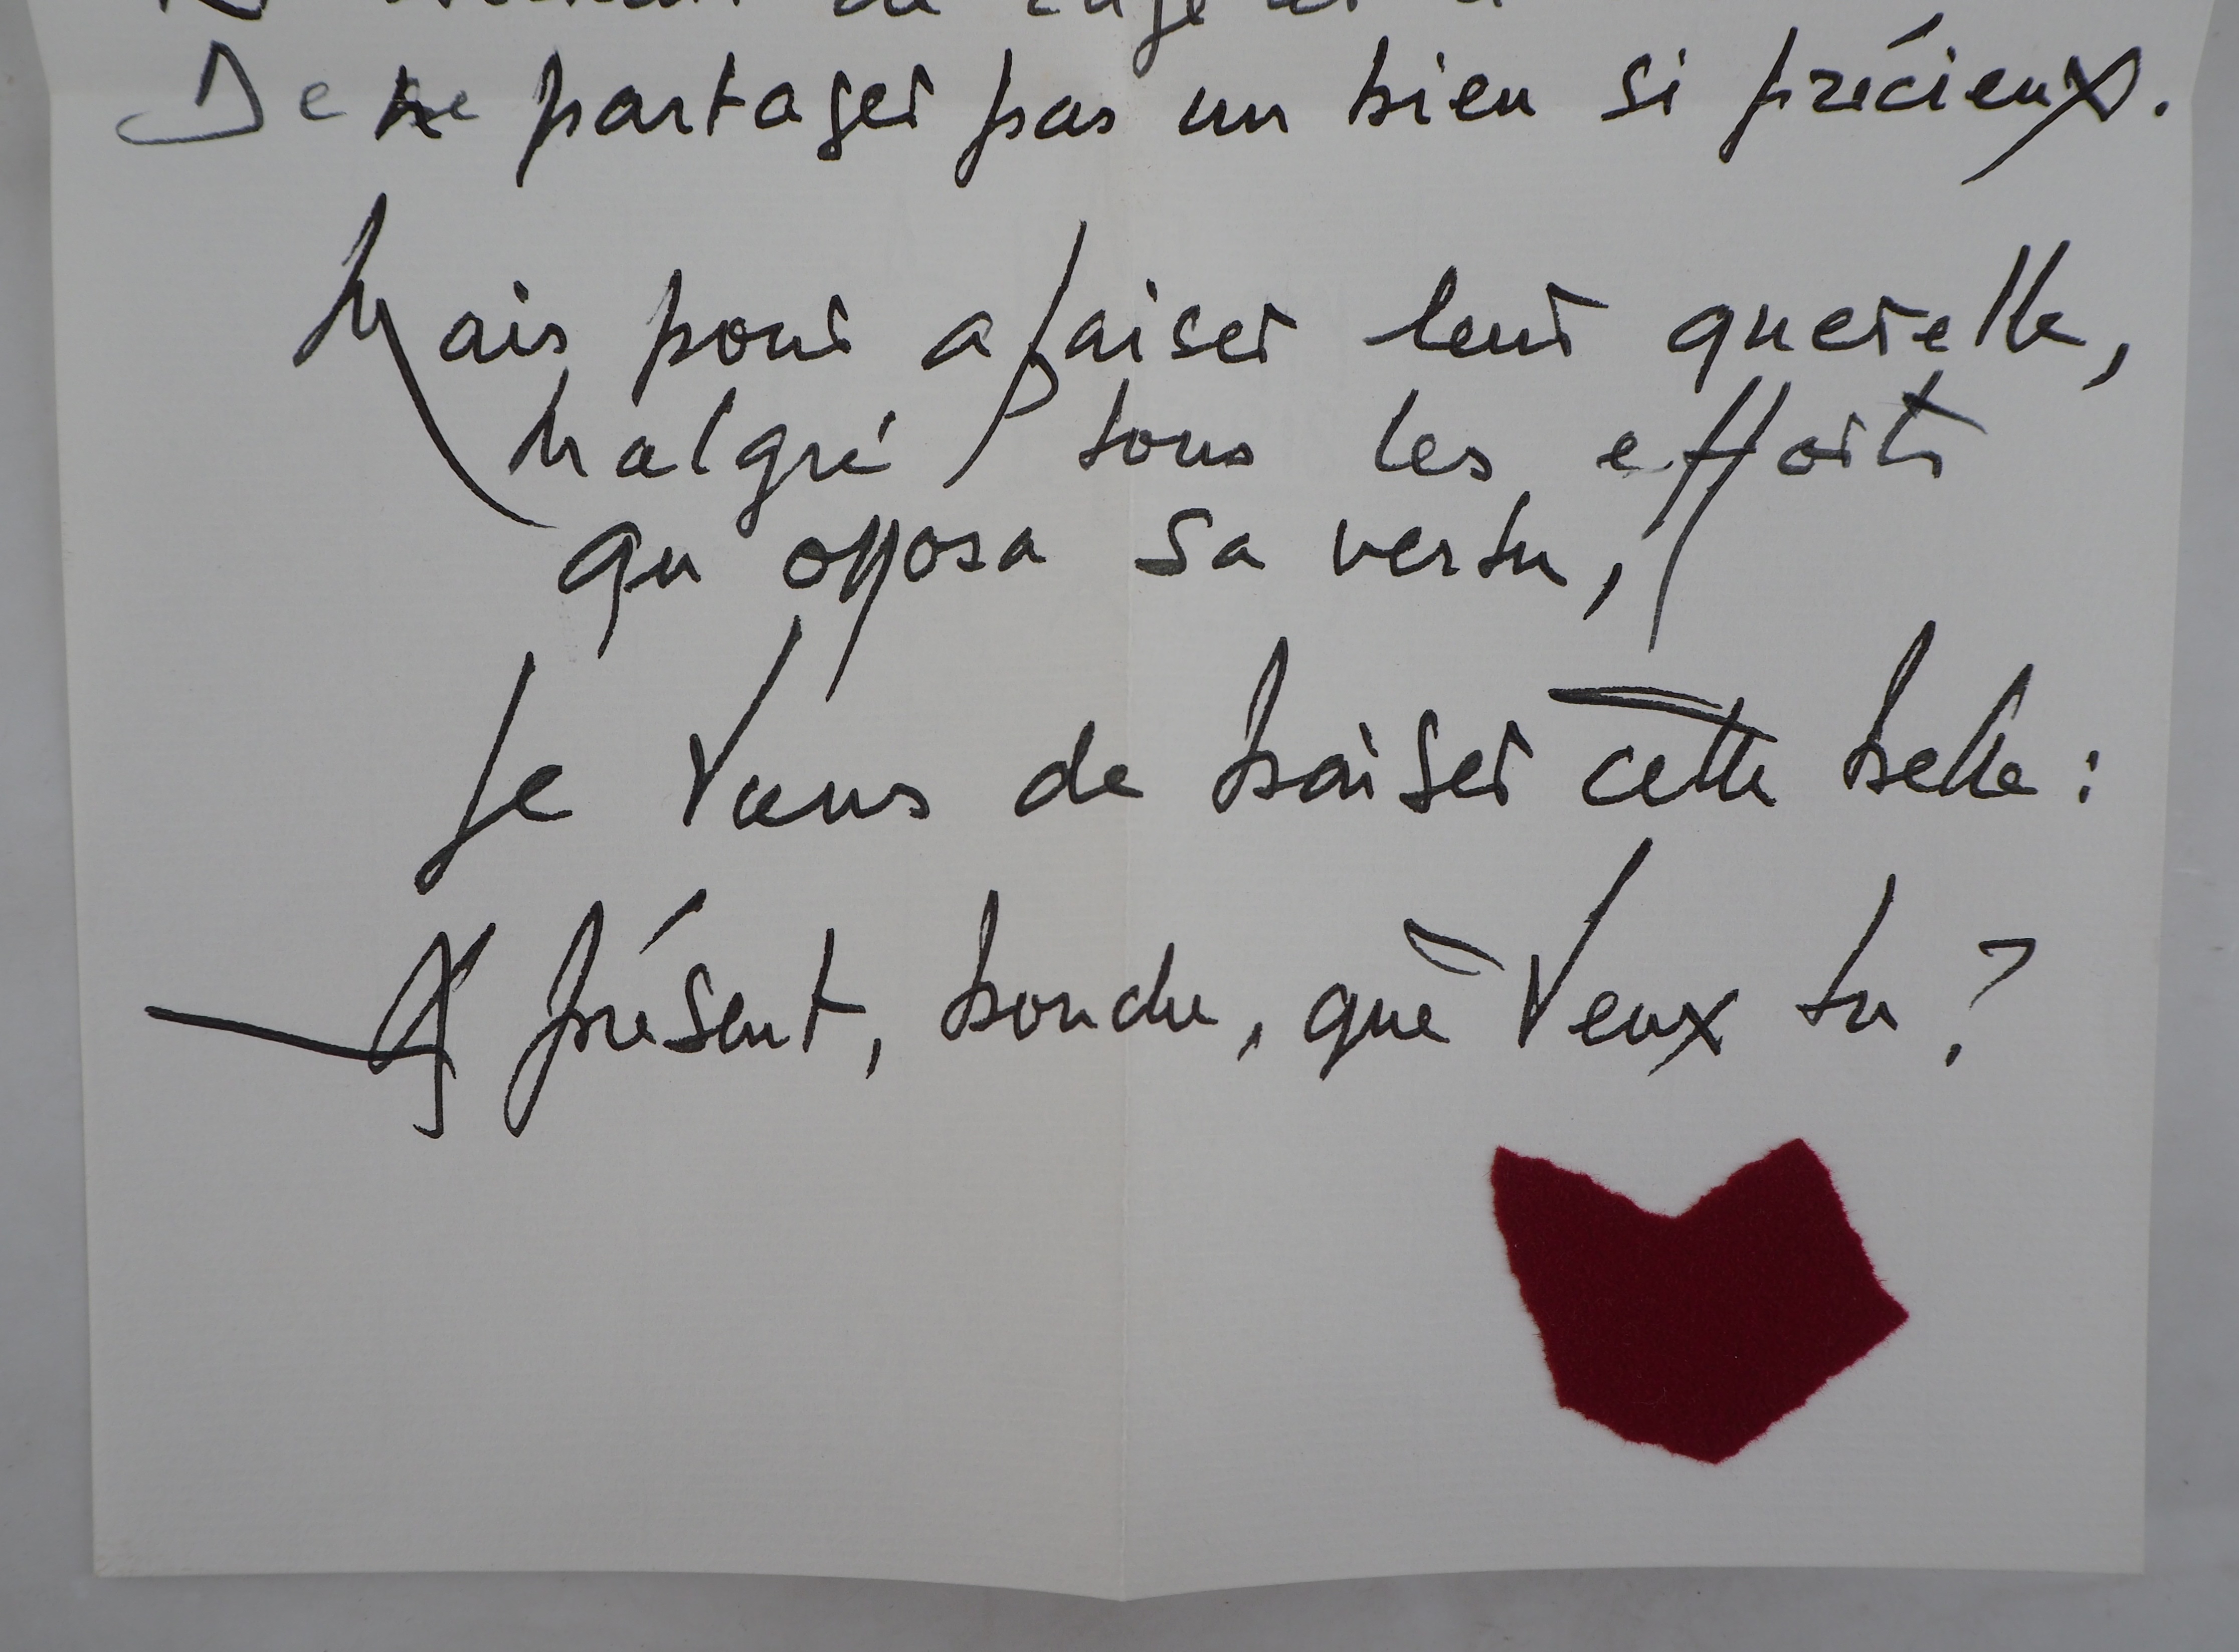 De ne partager pas un bien si précieux.
Mais pour apaiser leur querelle,
Malgré tous les efforts
qu opposa sa vertu,
Je viens de baiser cette belle :
A présent, bouche, que veux tu ?